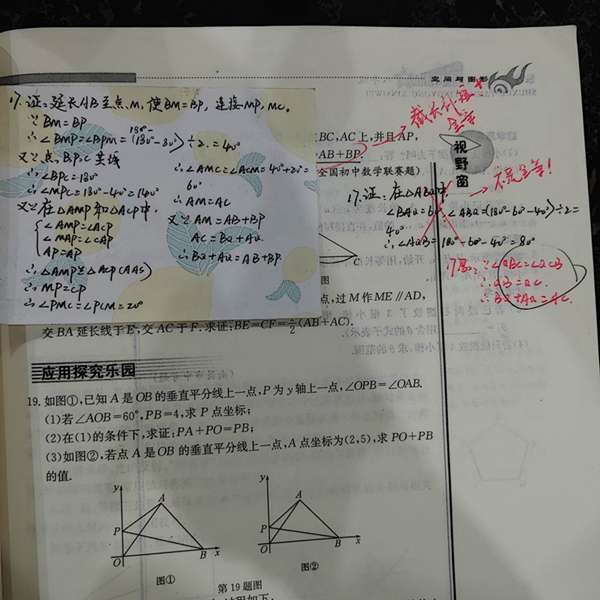 空间与图形
17.证:延长AB至点M,使BM=BP,连接MP,MC.
∵BM=BP
∴∠BMP=∠BPM=(180°-80°)÷2=40°
又∵点B,P,C共线
∴∠BPC=180°
∴∠MPC=180°-40°=140°
又∵在△AMP和△ACP中,
∠AMP=∠ACP
∠MAP=∠CAP
AP=AP
∴△AMP≌△ACP(AAS)
∴MP=CP
∴∠PMC=∠PCM=20°
∴∠AMC=∠ACM=40°+20°=
60°
∴AM=AC
又∵AM=AB+BP
AC=BQ+AQ
∴BQ+AQ=AB+BP.
BC,AC上,并且AP,
AB+BP.
全国初中数学联赛题)
截长补短+
全等
视野窗
17.证:在△ABQ中
不是全等!
∴∠AQB=180°-60°-40°=80°
∴QB=QC
∴BQ+AQ=AC.
点,过M作ME∥AD,
交BA延长线于E,交AC于F.求证:BE=CF=1/2(AB+AC).
应用探究乐园
19.如图①,已知A是OB的垂直平分线上一点,P为y轴上一点,∠OPB=∠OAB.
(1)若∠AOB=60°,PB=4,求P点坐标;
(2)在(1)的条件下,求证:PA+PO=PB;
(3)如图②,若点A是OB的垂直平分线上一点,A点坐标为(2,5),求PO+PB
的值.
y A P O B x
y A P O B x
图① 图②
第19题图